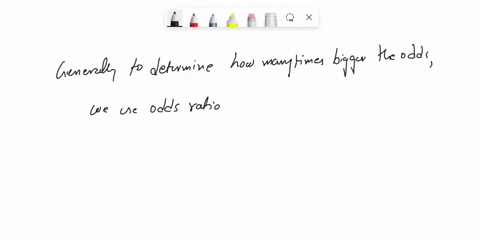 Generally to determine how many times bigger the odds,
we use odds ratio